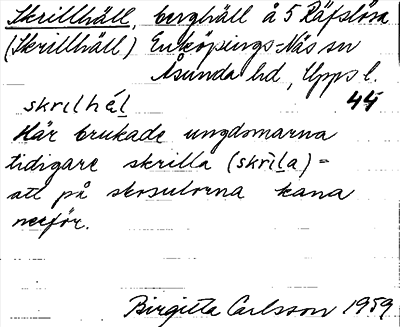 Skrillhäll, berghäll å 5 Räfslösa
(Skrillhäll) Enköpings-Näs sn
Åsunda hd, Upps l.
skrɩlhɛ́l 44
Här brukade ungdomarna
tidigare skrilla (skrìla) =
att på skosulorna kana
nerför.
Birgitta Carlsson 1959